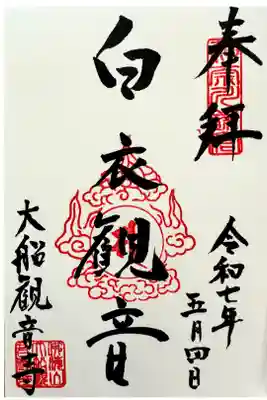 奉拝
令和七年
五月四日
白衣観音
大船観音寺